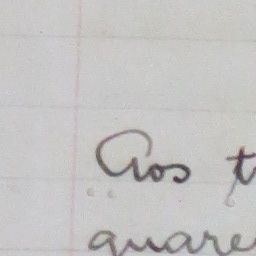 Aos t
quare